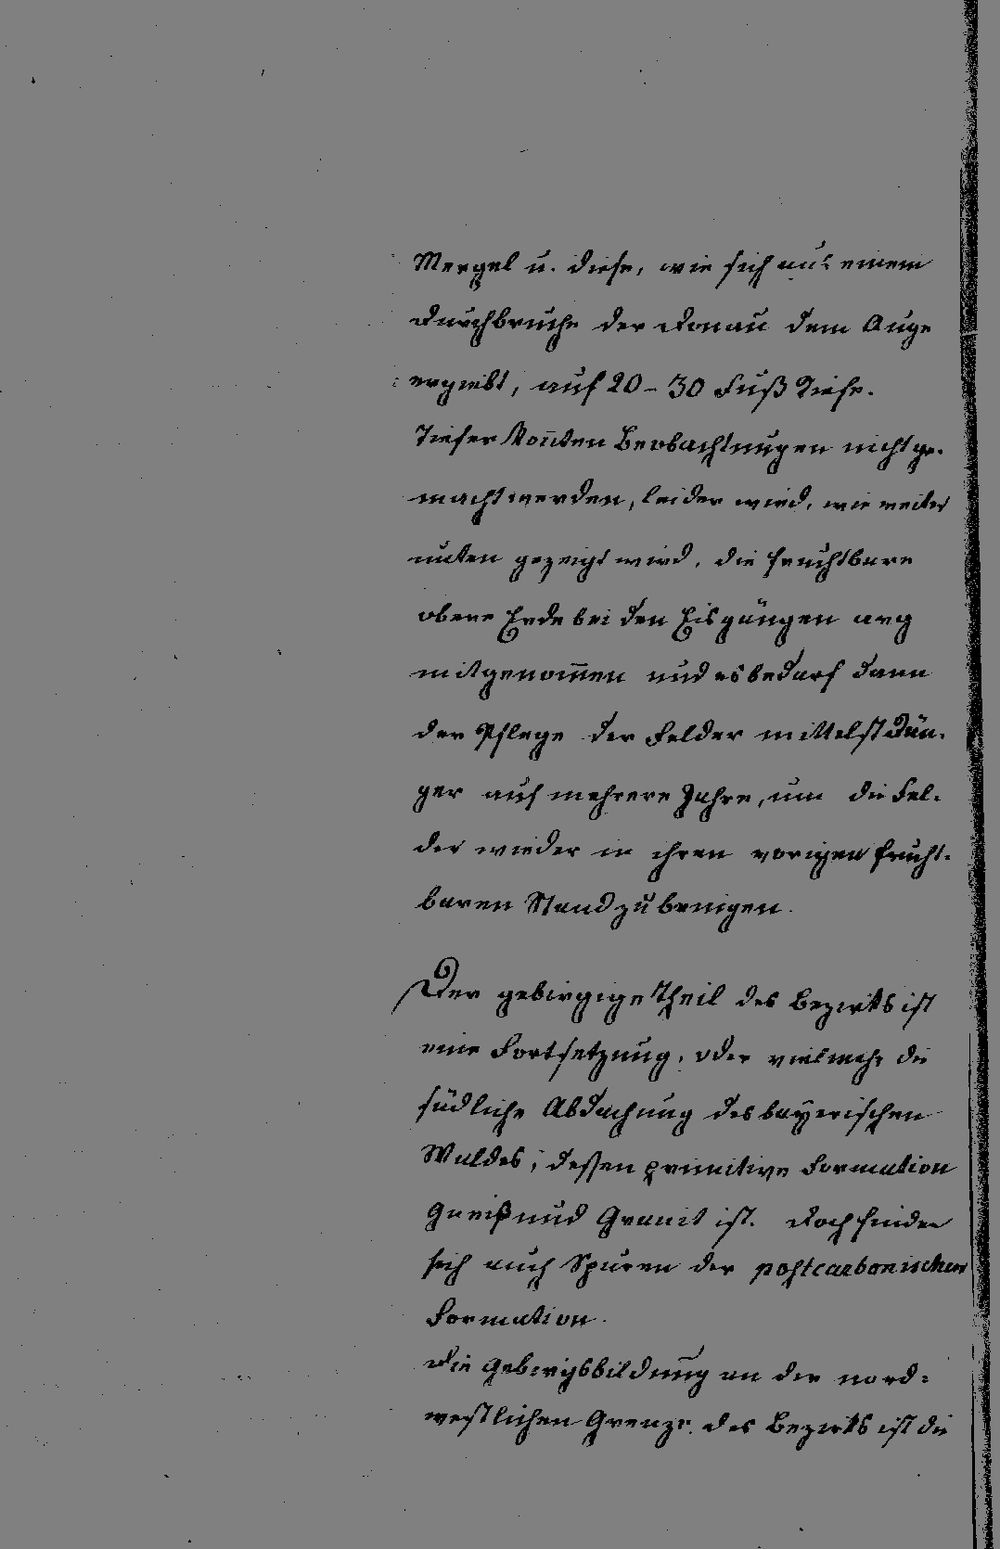 Mergel u. diese, wie sich aus einem
Durchbruche der Donau dem Auge
ergiebt, auf 20 – 30 Fuß Tiefe.
Tiefer kon̄ten Beobachtungen nicht ge-
macht werden, leider wird, wie weiter
unten gezeigt wird, die fruchtbare
obere Erde bei den Eisgängen arg
mitgenom̄en und es bedarf dann
der Pflege der Felder mittelst Dün-
ger auf mehrere Jahre, um die Fel-
der wieder in ihren vorigen frucht-
baren Stand zu bringen.
Der gebirgige Theil des Bezirks ist
eine Fortsetzung, oder vielmehr die
südliche Abdachung des bayerischen
Waldes, dessen primitive Formation
Gneiß und Granit ist. Doch finden
sich auch Spuren der postcarbonischen
Formation.
Die Gebirgsbildung an der nord-
westlichen Grenze des Bezirks ist die